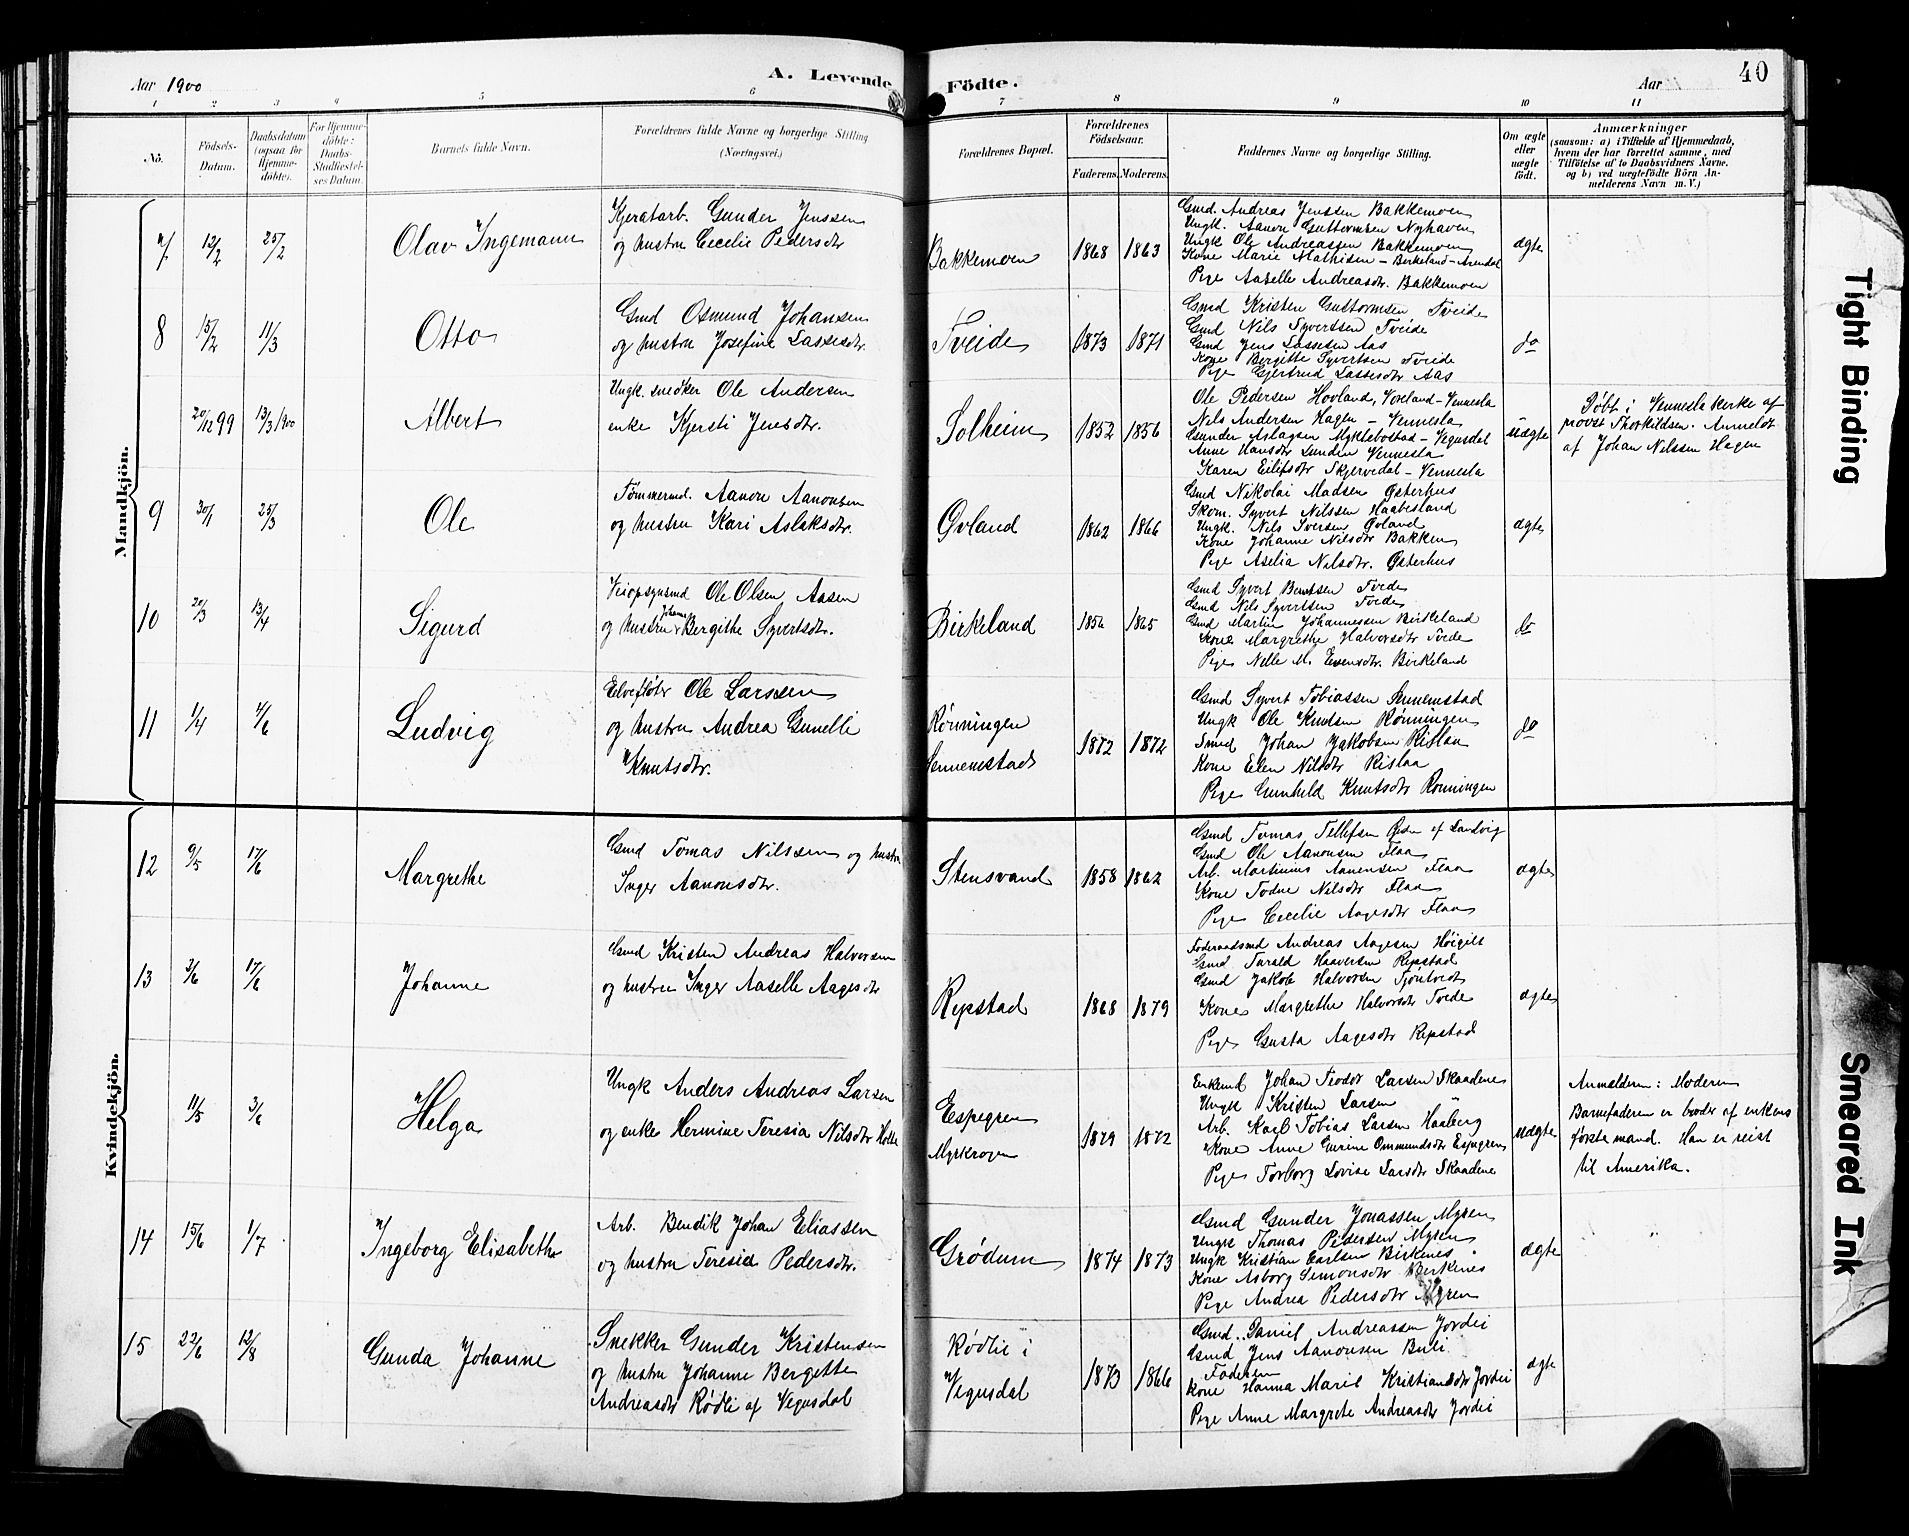 Aar 1900
A. Levende Födte.
Aar
40
1 2 3 4 5 6 7 8 9 10 11
No.
Födsels-Datum.
Daabsdatum (ogsaa for Hjemmedöbte).
For Hjemmedöbte: Daabs-Stadfæstelses Datum.
Barnets fulde Navn.
Forældrenes fulde Navne og borgerlige Stilling (Næringsvei.)
Forældrenes Bopæl.
Forældrenes Födselsaar.
Faderens. Moderens.
Faddernes Navne og borgerlige Stilling.
Om ægte eller uægte födt.
Anmærkninger
(saasom: a) i Tilfælde af Hjemmedaab, hvem der har forrettet samme, med Tilföielse af to Daabsvidners Navne. og b) ved uægtefödte Börn Anmelderens Navn m. V.)
Mandkjön.
7 12/2 25/2 Olav Ingemann
Kjøratarb. Gunder Jenssen
og hustru Cecilie Pedersdtr
Bakkemoen 1868 1863
Gmd. Andreas Jenssen Bakkemoen
Ungk. Aanon Guttormsen Nyhaven
Ungk Ole Andreassen Bakkemoen
Kone Marie Mathisen - Birkeland - Arendal
Pige Aaselle Andreasdtr. Bakkemoen
ægte
8 15/2 11/3 Otto
Gmd Osmund Johansen
og hustru Josefine Lassesdtr.
Tveide 1873 1871
Gmd Kristen Guttormsen Tveide
Gmd Nils Syvertsen Tveide
Gmd Jens Lassesen Aas
Kone Bergitte Syvertsen Tveide
Pige Gjertrud Lassesdtr Aas
do
20/12 99 13/3 1900 Albert
Ungk. snedker Ole Andersen
enke Kjersti Jensdtr.
Solheim 1852 1856
Ole Pedersen Hovland, Vennesla
Nils Andersen Hagen - Vennesla
Gunder Aslagsen Myklebostad - Vegusdal
Anne Hansdtr Lunden Vennesla
Karen Eilifsdtr Skjervedal - Vennesla
uægte
Døbt i Vennesla kirke af
provst Thorkildsen. Anmeldt
af Johan Nilssen Hagen
9 30/1 25/3 Ole
Tømmermd. Aanon Aanonsen
og hustru Kari Aslaksdtr.
Øvland 1862 1866
Gmd Nikolai Madsen Østerhus
Skom. Syvert Nilssen Haabesland
Ungk. Nils Iversen Øvland
Kone Johanne Nilsdtr Bakken
Pige Aselia Nilsdtr. Østerhus
ægte
10 20/3 13/4 Sigurd
Veiopsynsmd Ole Olsen Aasen
og hustru Johanne Bergithe Syvertsdtr.
Birkeland 1856 1865
Gmd Syvert Berntsen Tvede
Gmd Nils Syvertsen Tvede
Gmd Martin Johannessen Birkeland
Kone Margrethe Halvorsdtr Tvede
Pige Nelle M. Evensdtr. Birkeland
do
11 1/4 4/6 Ludvig
Elvefløter Ole Larssen
og hustru Andrea Gunelle
Knutsdtr.
Rønningen
Sennemstad 1872 1872
Gmd Syvert Tobiassen Sennemstad
Ungk Ole Knutsen Rønningen
Smed Johan Jakobsen Rislaa
Kone Elen Nilsdtr Rislaa
Pige Gunhild Knutsdtr Rønningen
do
Kvindekjön.
12 9/5 17/6 Margrethe
Gmd Tomas Nilssen og hustru
Inger Aanonsdtr.
Stensvand 1858 1862
Gmd Tomas Tellefsen
Gmd Ole Aanonsen Flaa
Arb. Martinius Aanensen Flaa
Kone Todne Nilsdtr Flaa
Pige Cecilie Aagesdtr Flaa
ægte
13 3/6 17/6 Johanne
Gmd Kristen Andreas Halvorsen
og hustru Inger Aaselle Aagesdtr
Repstad 1868 1879
Føderaadsmd Andreas Aagesen Høigilt
Gmd Tarald Haaversen Repstad
Gmd Jakob Halvorsen Tjøntvedt
Kone Margrethe Halvorsdtr Tvede
Pige Gusta Aagesdtr Repstad
ægte
11/5 3/6 Helga
Ungk Anders Andreas Larsen
og enke Hermine Teresia Nilsdtr Holte
Espegren
Myrkrogen 1879 1872
Enkemd Johan Teodor Larsen Skaadene
Ungk Kristen Larsen
Arb. Karl Tobias Larsen Haaberg
Kone Anne Gurine Ommundsdtr Espegren
Pige Torborg Lovise Larsdtr Skaadene
uægte
Anmelderen: Moderen
Barnefaderen er broder af enkens
første mand. Han er reist
til Amerika.
14 15/6 1/7 Ingeborg Elisabethe
Arb. Bendik Johan Eliassen
og hustru Teresia Pedersdtr.
Grødum 1874 1873
Gmd Gunder Jonassen Myren
Ungk Thomas Pedersen Myren
Ungk Kristian Carlsen Birkenes
Kone Asborg Simonsdtr Birkenes
Pige Andrea Pedersdtr Myren
ægte
15 22/6 12/8 Gunda Johanne
Snekker Gunder Kristensen
og hustru Johanne Bergitte
Andreasdtr Rødli af Vegusdal
Rødlie i
Vegusdal 1873 1866
Gmd. Daniel Andreassen Jordei
Gmd Jens Aanonsen Buli
Faderen
Kone Hanna Marie Kristiansdtr Jordei
Pige Anne Margrete Andreasdtr Jordei
ægte
Tight Binding
Smeared Ink